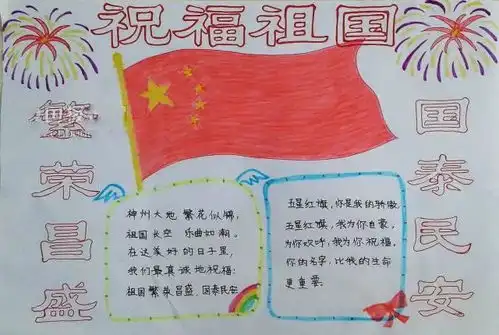 祝福祖国
繁荣昌盛
神州大地 繁花似锦,
祖国长空 乐曲如潮。
在这美好的日子里,
我们最真诚地祝福:
祖国繁荣昌盛、国泰民安
五星红旗,你是我的骄傲,
五星红旗,我为你自豪,
为你欢呼,我为你祝福,
你的名字,比我的生命
更重要。
国泰民安